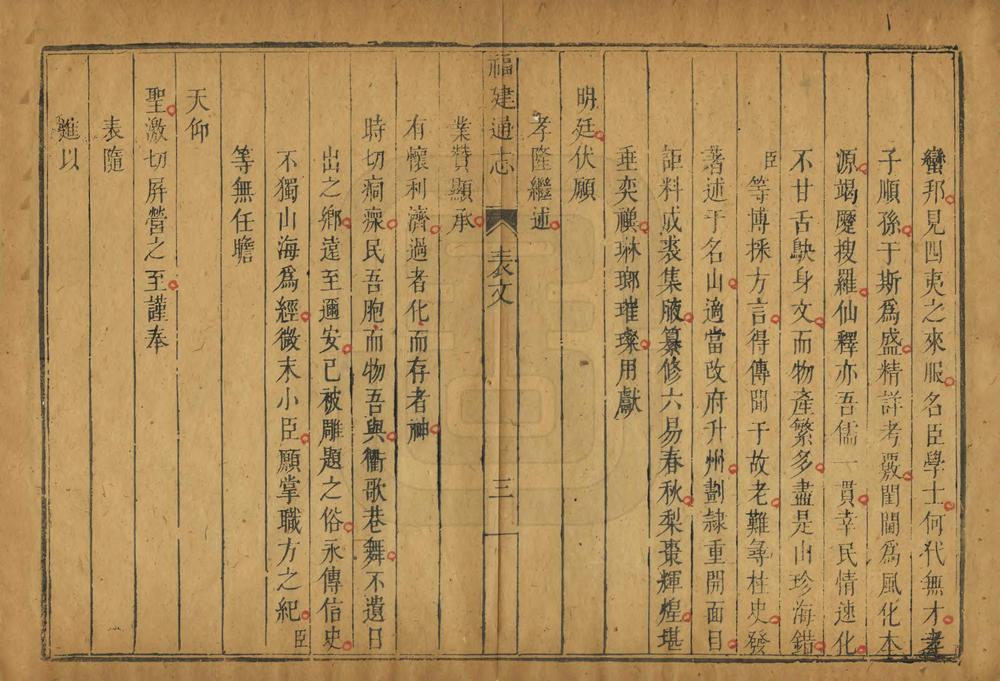 蠻邦見四夷之來服名臣學士何代無才孝
子順孫于斯爲盛精詳考覈閭閻爲風化本
源竭蹷搜羅仙釋亦吾儒一貫幸民情速化
不甘舌鴃身文而物產繁多盡是山珍海錯
臣等博採方言得傳聞于故老難尋柱史發
著述于名山適當改府升州劃隷重開面目
詎料成裘集腋纂修六易春秋梨棗輝煌堪
垂奕禩琳瑯璀璨用獻
明廷伏願
孝隆繼述
福建通志 表文 三
業贊顯承
有懷利濟過者化而存者神
時切痌瘝民吾胞而物吾與衢歌巷舞不遺日
出之鄉遠至邇安已被雕題之俗永傳信史
不獨山海爲經微末小臣願掌職方之紀臣
等無任瞻
天仰
聖激切屏營之至謹奉
表隨
進以